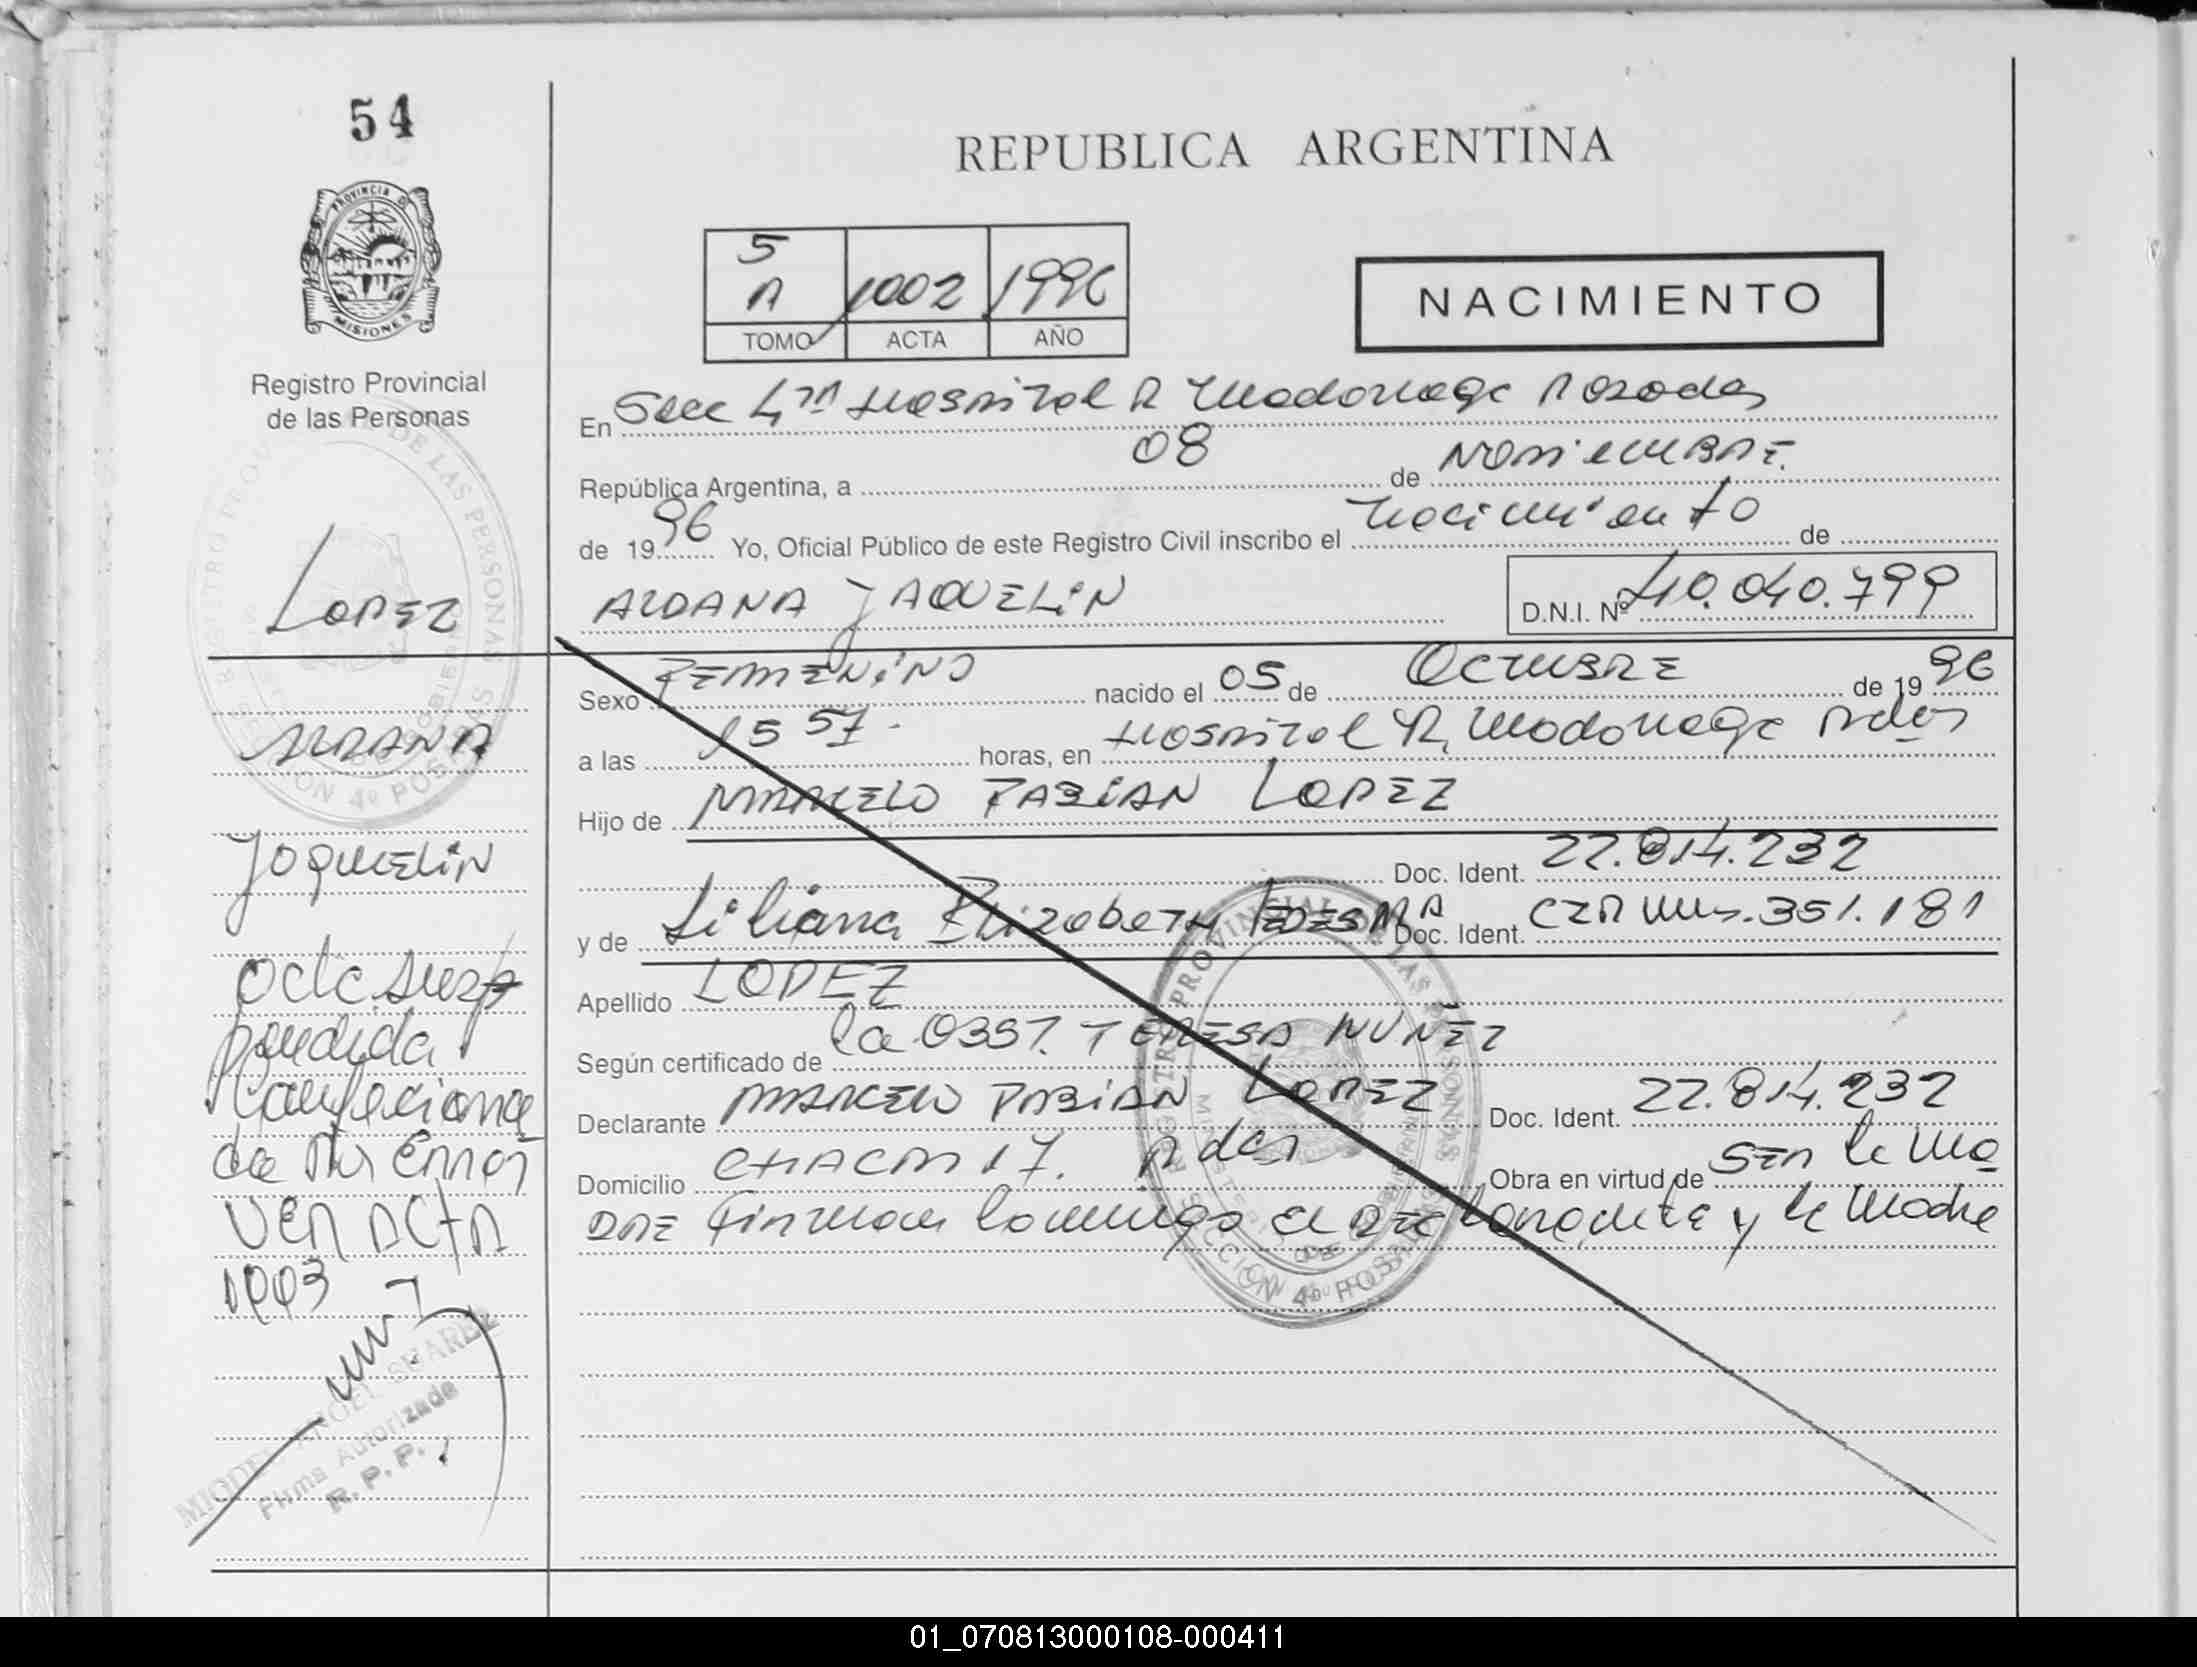 54
PROVINCIA D
MISIONES
Registro Provincial
de las Personas
REPUBLICA ARGENTINA
5
A 1002 1996
TOMO ACTA AÑO
NACIMIENTO
En Secc 4ta Hospital R Madariaga Posadas
República Argentina, a 08 de Noviembre
de 1996 Yo, Oficial Público de este Registro Civil inscribo el Nacimiento de
ALDANA JAQUELIN
D.N.I. Nº 40.040.799
LOPEZ
ALDANA
JAQUELIN
Sexo FEMENINO nacido el 05 de OCTUBRE de 1996
a las 1557 horas, en Hospital R. Madariaga Pdas
Hijo de MARCELO FABIAN LOPEZ
Doc. Ident. 22.814.232
y de Liliana Elizabeth LEDESMA Doc. Ident. 351.181
Apellido LOPEZ
Según certificado de la OBST. TERESA NUÑEZ
Declarante MARCELO FABIAN LOPEZ Doc. Ident. 22.814.232
Domicilio CHACO 17. Pdas Obra en virtud de SER la MA
DRE Firman conmigo el declarante y la Madre
Acta
pendida
confeciona
da por error
VER ACTA
1003
MIGUEL ANGEL SUAREZ
Firma Autorizada
R.P.P.
REGISTRO PROVINCIAL DE LAS PERSONAS
SECCION 4º POSADAS
01_070813000108-000411